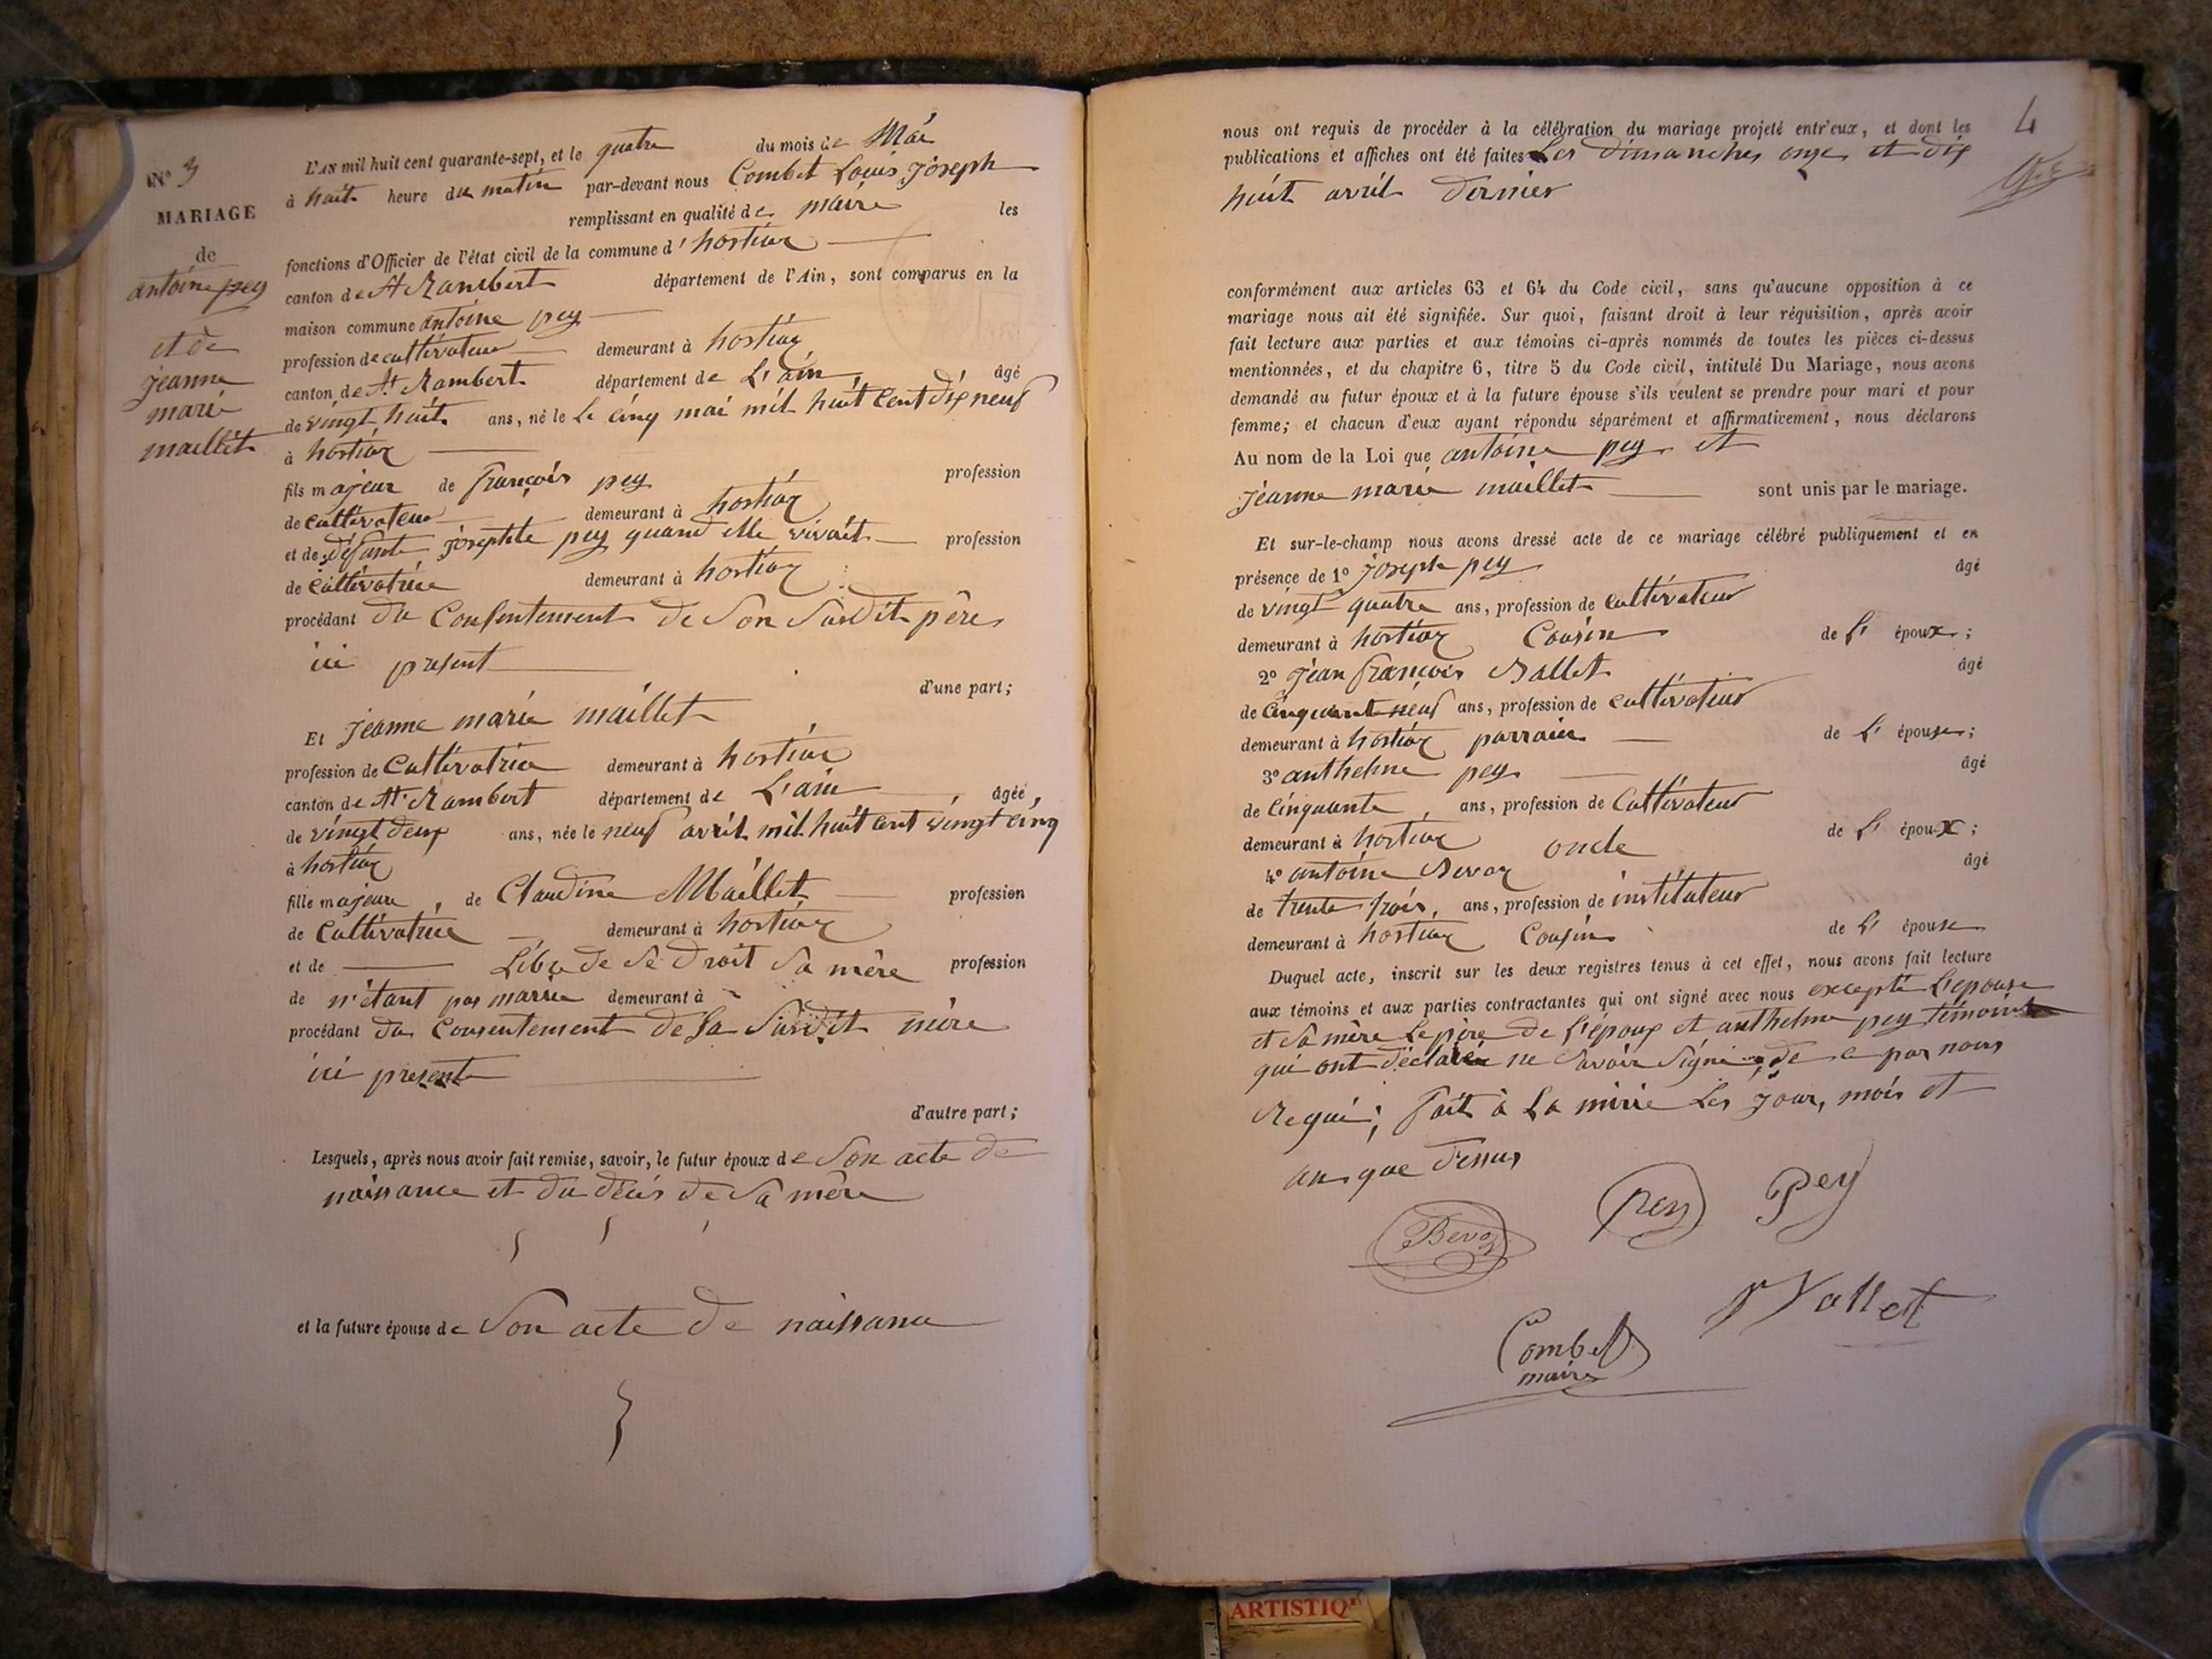 N° 3
MARIAGE
de
antoine pey
et de
jeanne
marie
maillet
L'AN mil huit cent quarante-sept, et le quatre du mois de Mai
à huit heure du matin par-devant nous Combet Louis Joseph
remplissant en qualité de maire les
fonctions d'Officier de l'état civil de la commune d'hostiaz
canton de St Rambert département de l'Ain, sont comparus en la
maison commune antoine pey
profession de cultivateur demeurant à hostiaz
canton de St Rambert département de L'ain, âgé
de vingt huit ans, né le Le cinq mai mil huit cent dix neuf
à hostiaz
fils majeur de françois pey profession
de cultivateur demeurant à hostiaz
et de défunte josephte pey quand elle vivait profession
de cultivatrice demeurant à hostiaz
procédant du Consentement de Son Susdit père
ici present
d'une part;
Et jeanne marie maillet
profession de Cultivatrice demeurant à hostiaz
canton de St Rambert département de L'ain, âgée
de vingt deux ans, née le neuf avril mil huit cent vingt cinq
à hostiaz
fille majeure, de Claudine Maillet profession
de Cultivatrice demeurant à hostiaz
et de Libre de Sé Droit Sa mère profession
de n'étant pas mariée demeurant à
procédant du Consentement de Sa Susdit mère
ici presente
d'autre part;
Lesquels, après nous avoir fait remise, savoir, le futur époux de Son acte de
naissance et du décès de Sa mère
et la future épouse de Son acte de naissance
4
nous ont requis de procéder à la célébration du mariage projeté entr'eux, et dont les
publications et affiches ont été faites Les dimanches onze et dix
huit avril dernier
conformément aux articles 63 et 64 du Code civil, sans qu'aucune opposition à ce
mariage nous ait été signifiée. Sur quoi, faisant droit à leur réquisition, après avoir
fait lecture aux parties et aux témoins ci-après nommés de toutes les pièces ci-dessus
mentionnées, et du chapitre 6, titre 5 du Code civil, intitulé Du Mariage, nous avons
demandé au futur époux et à la future épouse s'ils veulent se prendre pour mari et pour
femme; et chacun d'eux ayant répondu séparément et affirmativement, nous déclarons
Au nom de la Loi que antoine pey et
jeanne marie maillet sont unis par le mariage.
Et sur-le-champ nous avons dressé acte de ce mariage célébré publiquement et en
présence de 1° joseph pey âgé
de vingt quatre ans, profession de cultivateur
demeurant à hostiaz Cousin de L' époux;
2° jean françois Vallet âgé
de Cinquante neuf ans, profession de cultivateur
demeurant à hostiaz parrain de L' épouse;
3° anthelme pey âgé
de Cinquante, ans, profession de Cultivateur
demeurant à hostiaz oncle de L' époux;
4° antoine Bevoz âgé
de trente trois, ans, profession de instituteur
demeurant à hostiaz Cousin de L' épouse
Duquel acte, inscrit sur les deux registres tenus à cet effet, nous avons fait lecture
aux témoins et aux parties contractantes qui ont signé avec nous excepté L'epouse
et Sa mère Le père de L'époux et anthelme pey témoin
qui ont déclaré ne Savoir Signé de ce par nous
Requi; fait à La mirie Les jour, mois et
an que dessus
Bevoz pey Pey
Vallet
Combet
maire
ARTISTIQ